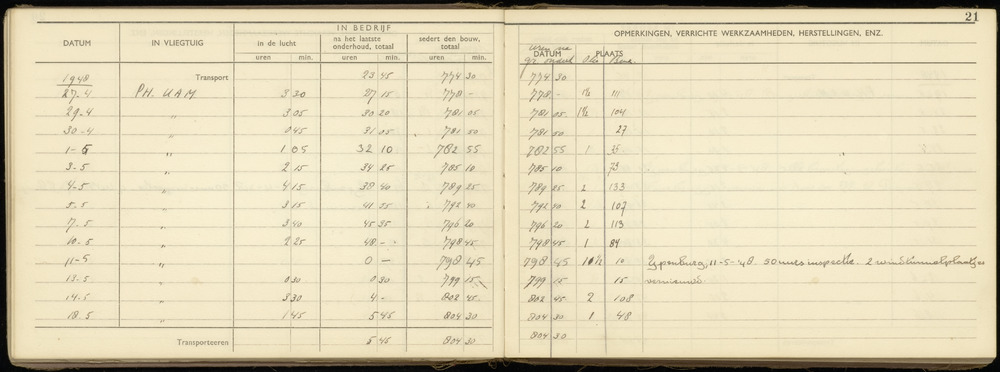 21
IN BEDRIJF
DATUM IN VLIEGTUIG in de lucht na het laatste onderhoud, totaal sedert den bouw, totaal
uren min. uren min. uren min.
OPMERKINGEN, VERRICHTE WERKZAAMHEDEN, HERSTELLINGEN, ENZ.
uren na
DATUM PLAATS
gr. onderh Olie Benz.
1948 Transport 23 45 774 30 774 30
27-4 PH. UAM 3 30 27 15 778 - 778 - 1½ 111
29-4 " 3 05 30 20 781 05 781 05 1½ 104
30-4 " 0 45 31 05 781 50 781 50 27
1-5 " 1 05 32 10 782 55 782 55 1
3-5 " 2 15 34 25 785 10 785 10 73
4-5 " 4 15 38 40 789 25 789 25 2 133
5-5 " 3 15 792 40 792 40 2 107
7-5 " 3 40 45 35 796 20 796 20 2 113
10.5 " 2 25 48 - 798 45 798 45 1 84
11-5 " 0 - 798 45 798 45 10½ 10 Ypenburg, 11-5-'48. 50 uurs inspectie. 2 windtunnelplaatjes
13-5 " 0 30 0 30 799 15 799 15 15 vernieuwd.
14-5 " 3 30 4 - 802 45 802 45 2 108
18.5 " 1 45 5 45 804 30 804 30 1 48
Transporteeren 5 45 804 30 804 30